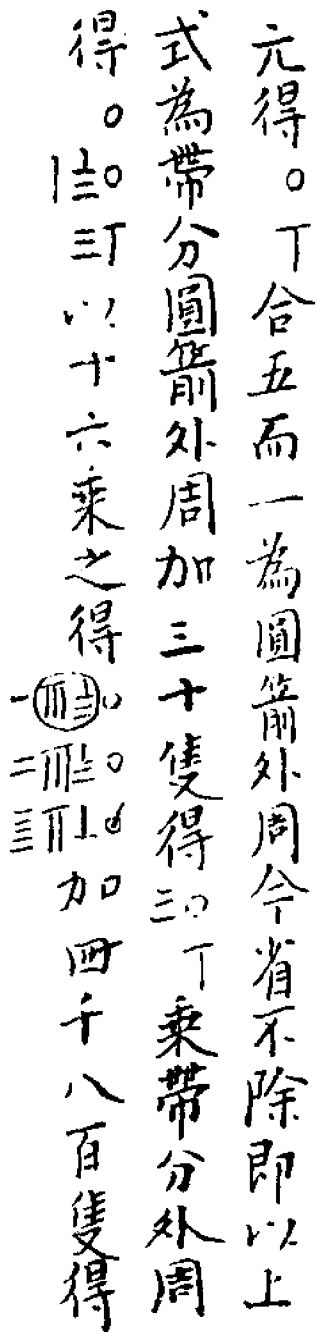 元得〇丅合五而一為圓箭外周今省不除即以上
式為帶分圓箭外周加三十隻得三〇丅乘帶分外周
得〇〡𝍰〇三丅以十六乘之得加四千八百隻得